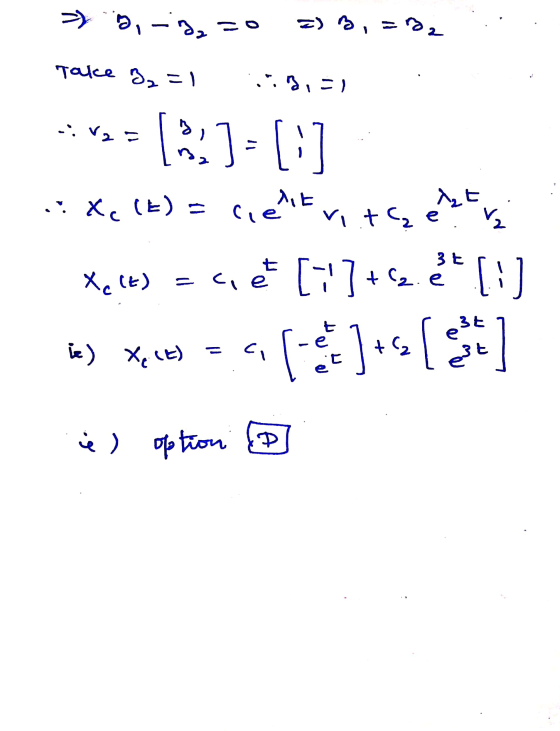 ⇒ 3₁ - 3₂ = 0 ⇒ 3₁ = 3₂
Take 3₂ = 1 ∴ 3₁ = 1
∴ v₂ = [3₁ 3₂] = [1 1]
∴ X_c(t) = c₁ e^{λ₁t} v₁ + c₂ e^{λ₂t} v₂
X_c(t) = c₁ e^t [-1 1] + c₂ e^{3t} [1 1]
ie) X_c(t) = c₁ [-e^t e^t] + c₂ [e^{3t} e^{3t}]
ie) option D